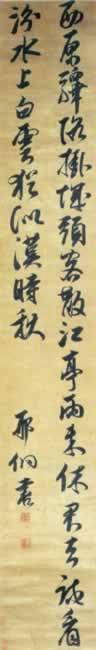 西原驛路掛城頭客散江亭雨未休君去試看
汾水上白雲猶似漢時秋
邢侗書